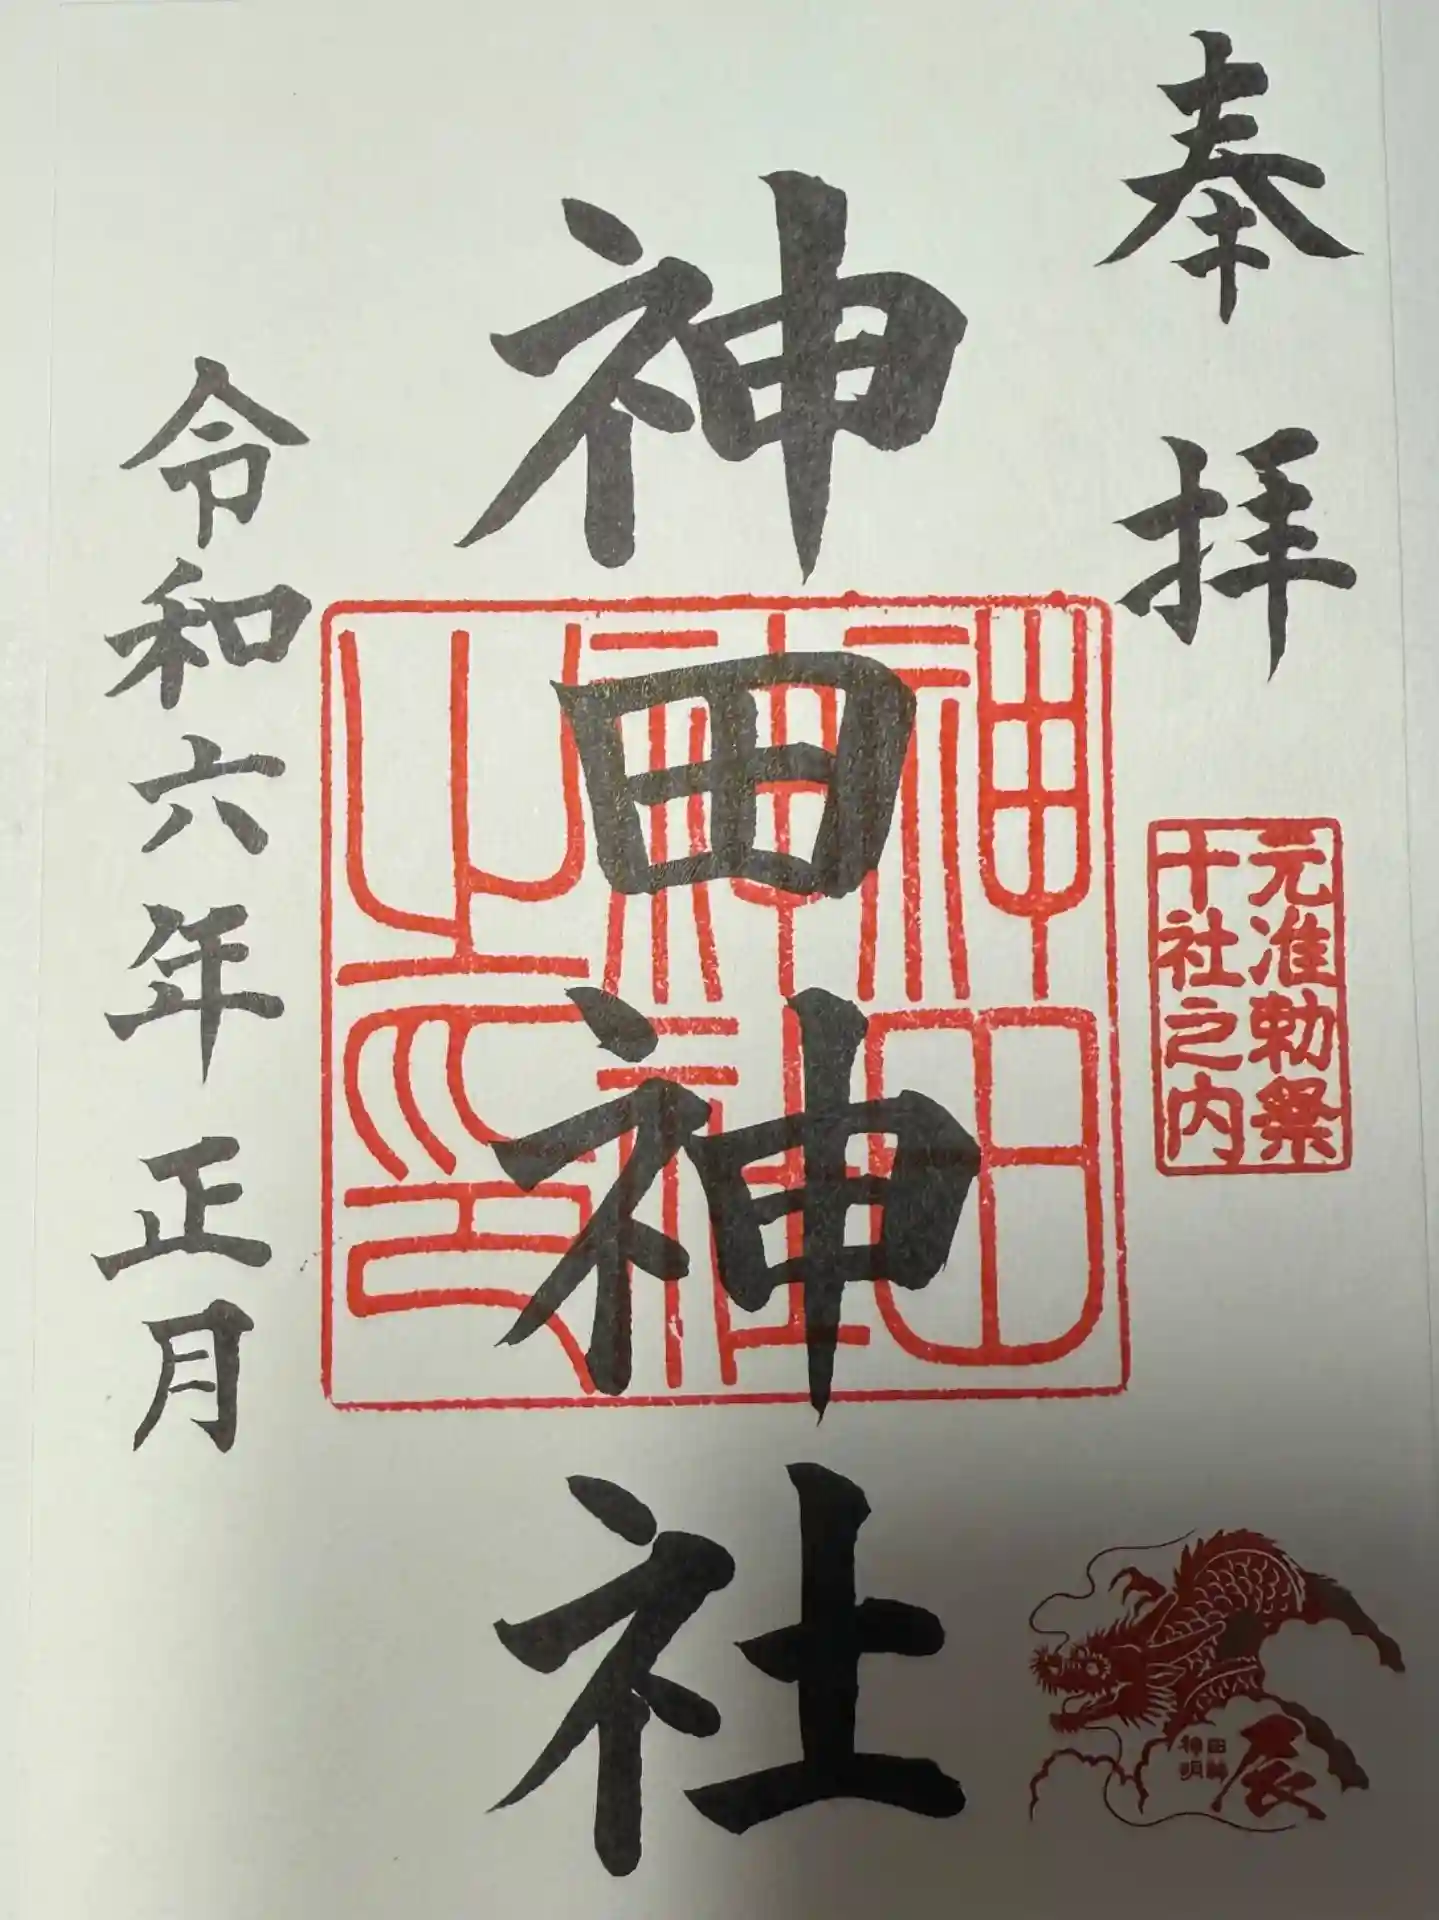 奉拝
元准勅祭
十社之内
神田神社
神田
神社
之印
令和六年正月
辰